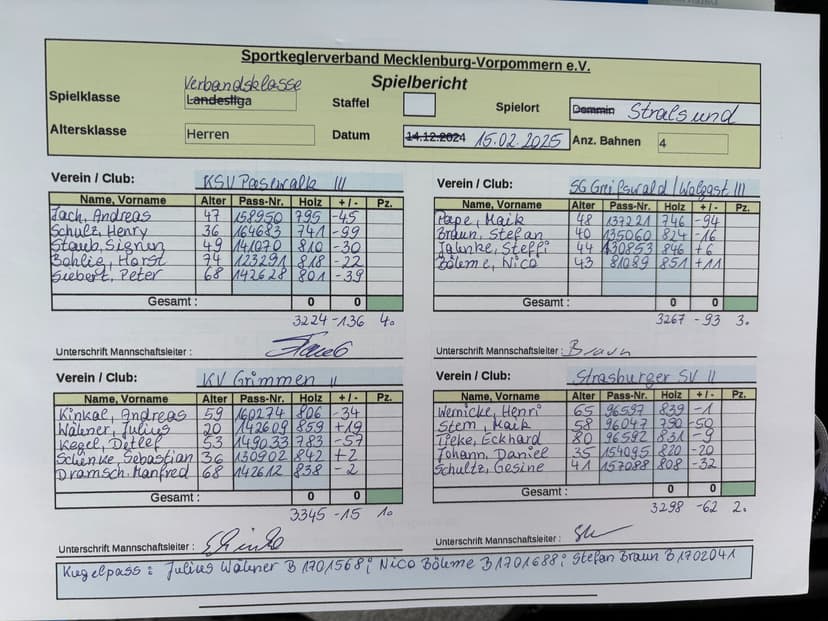 Sportkeglerverband Mecklenburg-Vorpommern e.V.
Spielbericht
Spielklasse Verbandsklasse Landesliga Staffel Spielort Demmin Stralsund
Altersklasse Herren Datum 14.12.2024 15.02.2025 Anz. Bahnen 4
Verein / Club: KSV Pasewalk III
Name, Vorname Alter Pass-Nr. Holz +/- Pz.
Jach, Andreas 47 158950 795 -45
Schulz, Henry 36 164683 741 -99
Staub, Signun 49 141070 810 -30
Bohlig, Horst 74 123291 818 -22
Siebert, Peter 68 142628 801 -39
Gesamt : 0 0
3224 -136 4.
Unterschrift Mannschaftsleiter :
Verein / Club: SG Greifswald/Wolgast III
Name, Vorname Alter Pass-Nr. Holz +/- Pz.
Pape, Maik 48 137221 746 -94
Braun, Stefan 40 135060 824 -16
Jahnke, Steffi 44 130853 846 +6
Böhme, Nico 43 81089 851 +11
Gesamt : 0 0
3267 -93 3.
Unterschrift Mannschaftsleiter : Braun
Verein / Club: KV Grimmen II
Name, Vorname Alter Pass-Nr. Holz +/- Pz.
Kinkal, Andreas 59 160274 806 -34
Wähner, Julius 20 142609 859 +19
Kegel, Detlef 53 149033 783 -57
Schenke, Sebastian 36 130902 842 +2
Dramsch. Manfred 68 142612 838 -2
Gesamt : 0 0
3345 -15 1.
Unterschrift Mannschaftsleiter :
Verein / Club: Strasburger SV II
Name, Vorname Alter Pass-Nr. Holz +/- Pz.
Wernicke, Henri 65 96597 839 -1
Stern, Maik 58 96047 790 -50
Tieke, Eckhard 80 96592 831 -9
Johann, Daniel 35 154095 820 -20
Schultz, Gesine 41 157088 808 -32
Gesamt : 0 0
3298 -62 2.
Unterschrift Mannschaftsleiter :
Kugelpass : Julius Wähner B 1701568; Nico Böhme B1701688; Stefan Braun B1702041